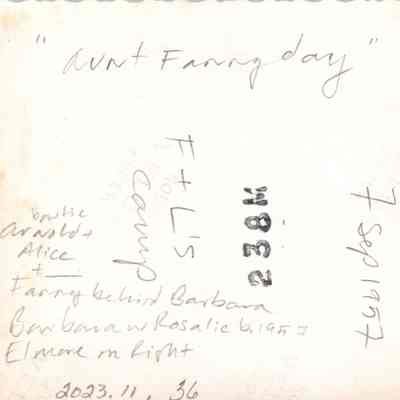 "Aunt Fanny day"
F + L's
camp
W832
7 Sep 1957
Arnold +
Alice
+
Fanny behind Barbara
Barbara w Rosalie b. 1957
Elmore on Right
2023.11.36